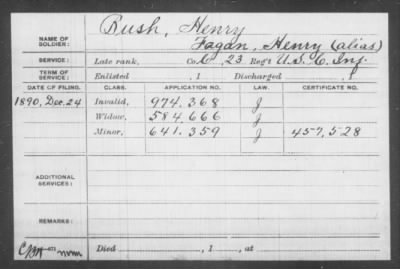 NAME OF SOLDIER: Bush, Henry
Fagan, Henry (alias)
SERVICE: Late rank, Co. C, 23 Reg't U.S.C. Inf.
TERM OF SERVICE: Enlisted , 1 Discharged , 1
DATE OF FILING. CLASS. APPLICATION NO. LAW. CERTIFICATE NO.
1890, Dec. 24 Invalid, 974,368 J
Widow, 584,666 J
Minor, 641,359 J 457,528
ADDITIONAL SERVICES:
REMARKS:
Died , 1 , at